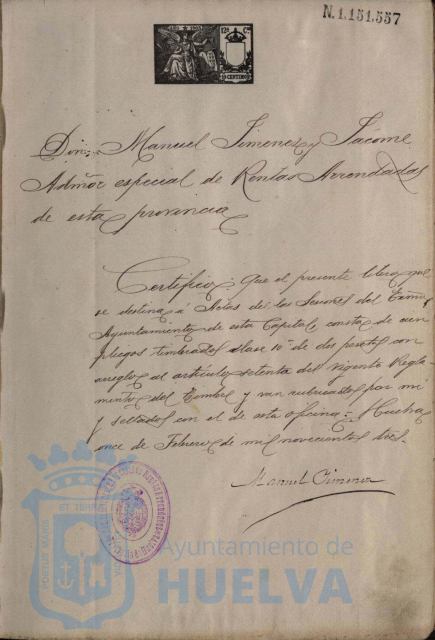 N.1.151.557
AÑO 1903 12ª Cl.
10 CENTIMOS
Don Manuel Jimenez y Jácome
Admõr especial de Rentas Arrendadas
de esta provincia
Certifico: Que el presente libro que
se destina á Actas de las Sesiones del Excmo
Ayuntamiento de esta Capital, consta de cien
pliegos timbrados clase 10ª de dos pesetas con
arreglo al artículo setenta del vigente Regla-
mento del Timbre y van rubricados por mí
y sellados con el de esta oficina. Huelva
once de Febrero de mil novecientos tres.
Manuel Jimenez
PORTUS MARIS ET TERRAE
Ayuntamiento de
HUELVA